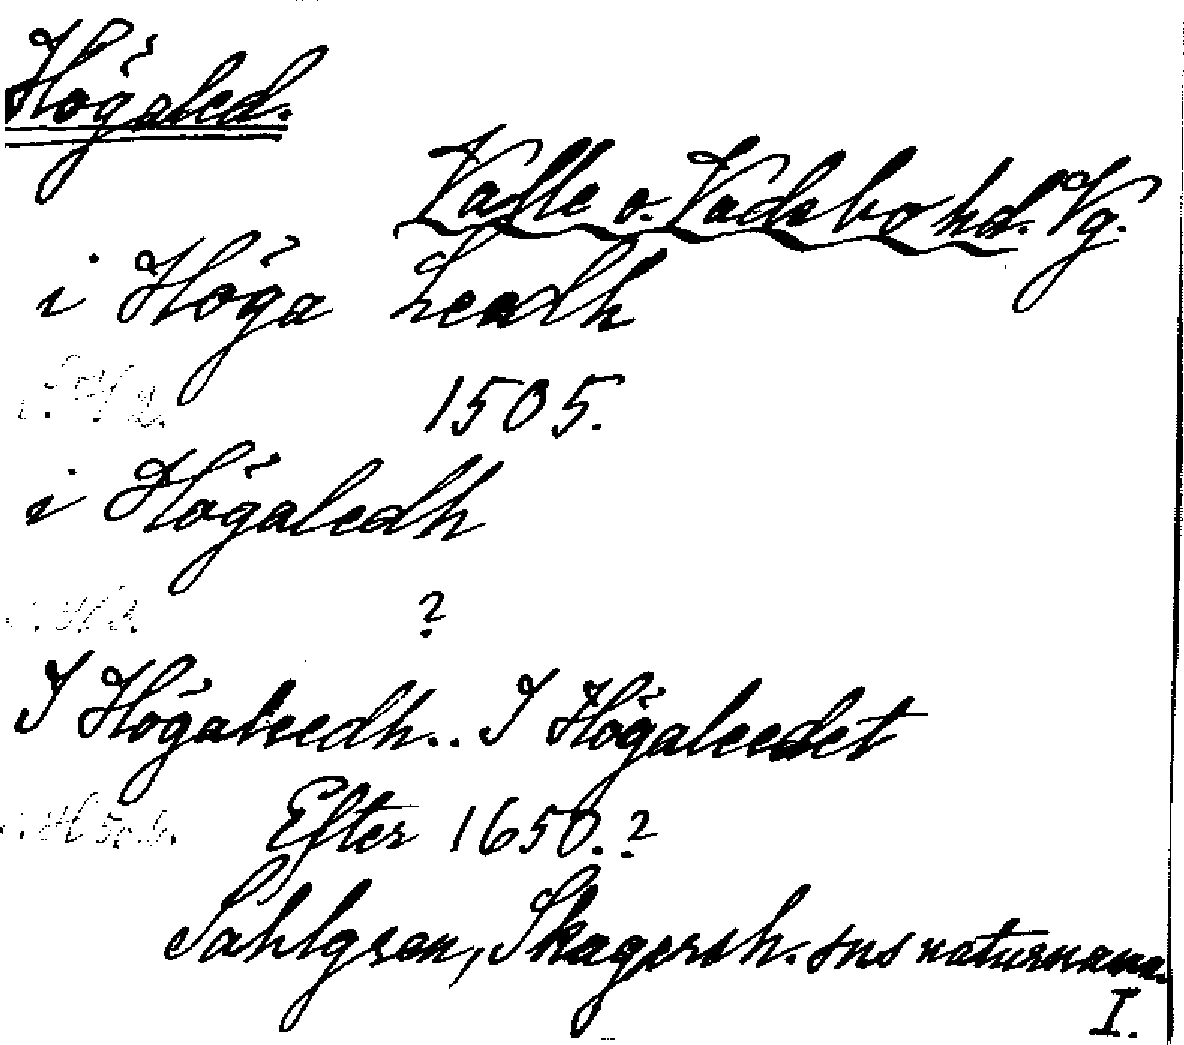 Högaled.
Valle o. Vadsbo hd. Vg.
i Höga Leadh
1505.
i Högaledh
?
I Högaleedh.. I Högaleedet
Efter 1650.?
Sahlgren, Skagersh. sns naturnamn.
I.